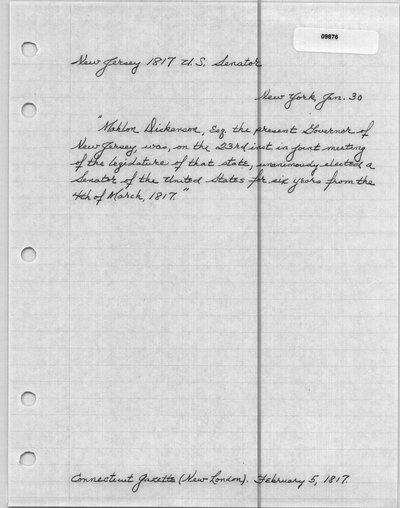 09876
New Jersey 1817 U.S. Senator
New York, Jan. 30
"Mahlon Dickenson, Esq. the present Governor of
New Jersey, was, on the 23rd inst. in joint meeting
of the legislature of that state, unanimously elected a
Senator of the United States for six years from the
4th of March, 1817."
Connecticut Gazette (New London). February 5, 1817.